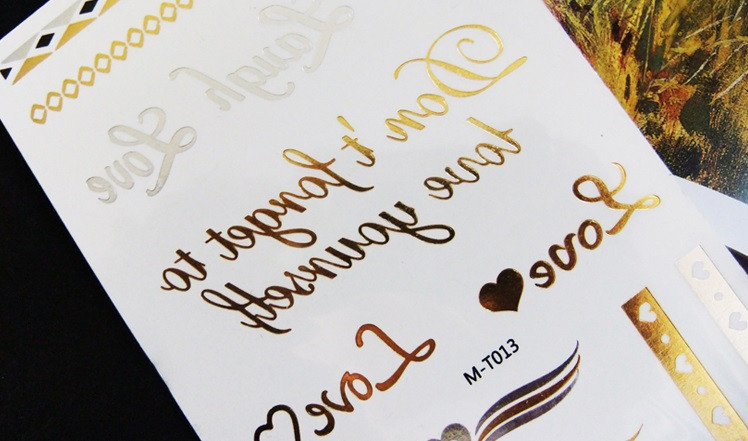 Laugh Love
Don't forget to
love yourself
Love
Love
M-T013